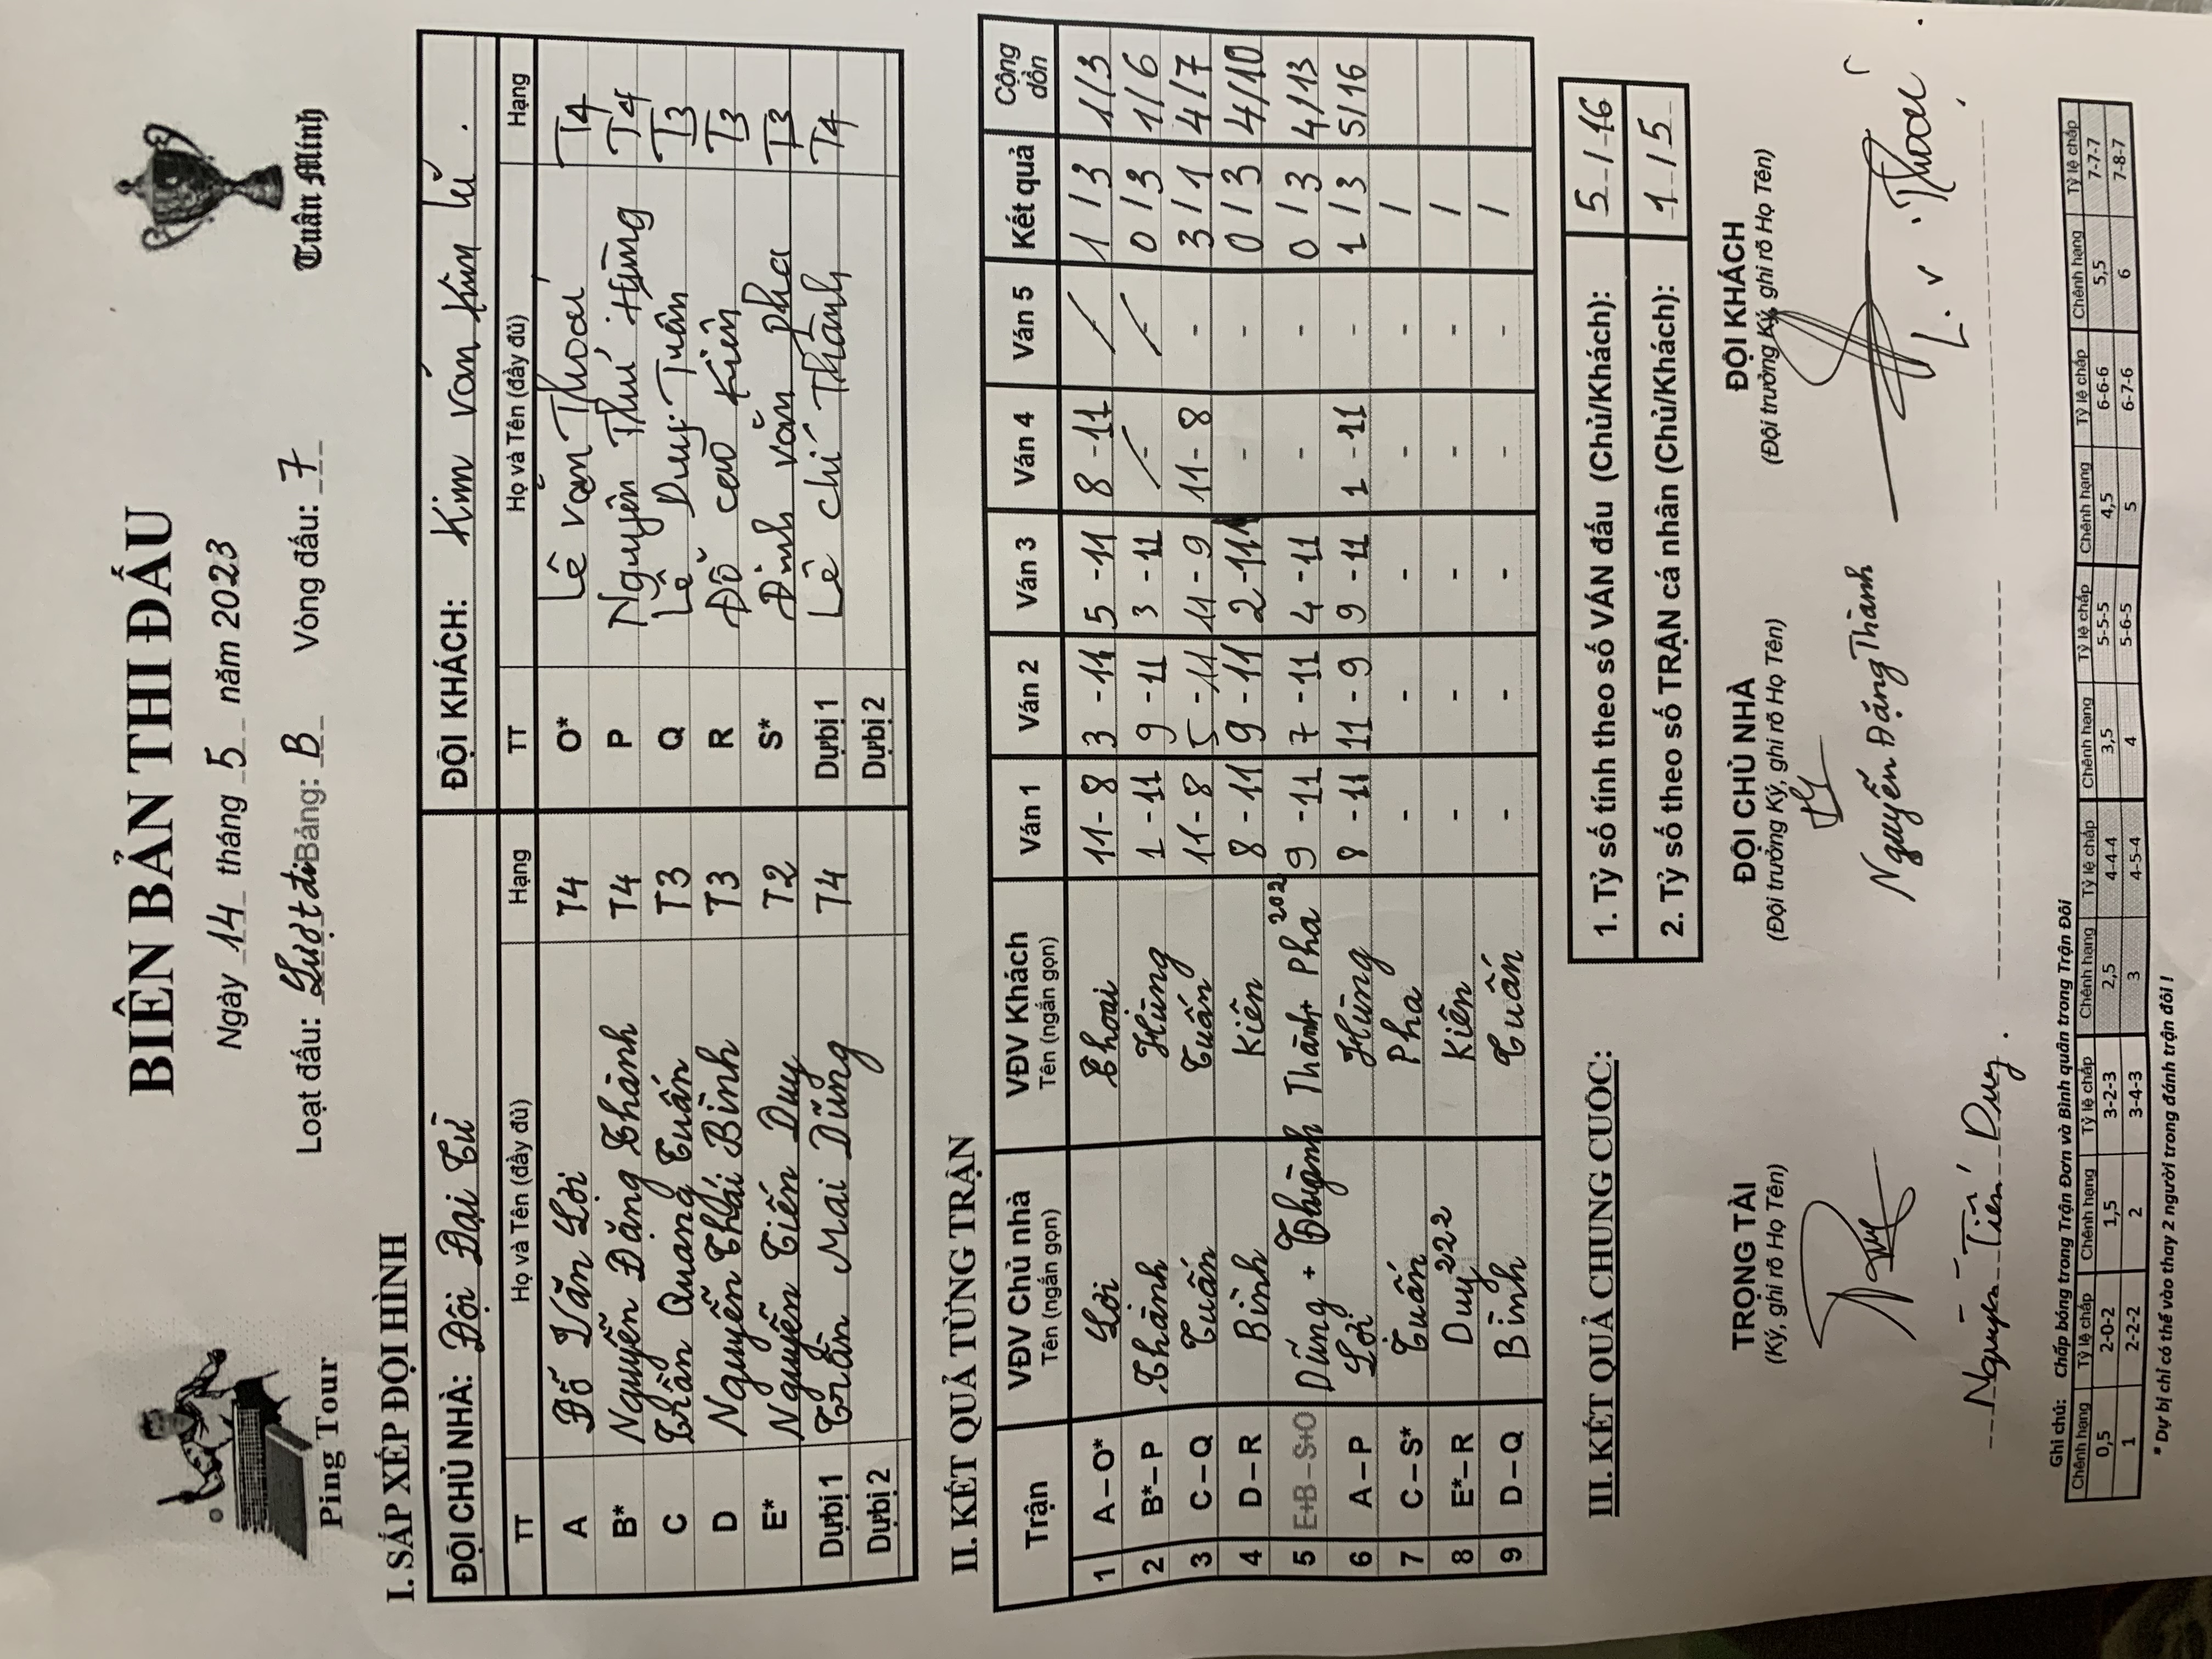 BIÊN BẢN THI ĐẤU
Ping Tour
Tuấn Minh
Ngày 14 tháng 5 năm 2023
Loạt đấu: Lượt đi Bảng: B Vòng đấu: 7
I. SẮP XẾP ĐỘI HÌNH
ĐỘI CHỦ NHÀ: Đội Đại Từ ĐỘI KHÁCH: Kim văn Kim lũ.
TT Họ và Tên (đầy đủ) Hạng TT Họ và Tên (đầy đủ) Hạng
A Đỗ Văn Lợi T4 O* Lê văn Thoai T4
B* Nguyễn Đặng Thành T4 P Nguyễn Thú Hùng T4
C Trần Quang Tuấn T3 Q Lê Duy Tuân T3
D Nguyễn Thái Bình T3 R Đỗ cao Kiên T3
E* Nguyễn Tiến Duy T2 S* Đinh văn Pha T3
Dự bị 1 Trần Mai Dũng T4 Dự bị 1 Lê chí Thành T4
Dự bị 2 Dự bị 2
II. KẾT QUẢ TỪNG TRẬN
Trận VĐV Chủ nhà Tên (ngắn gọn) VĐV Khách Tên (ngắn gọn) Ván 1 Ván 2 Ván 3 Ván 4 Ván 5 Kết quả Cộng dồn
1 A – O* Lợi Thoai 11-8 3-11 5-11 8-11 / 1/3 1/3
2 B* – P Thành Hùng 1-11 9-11 3-11 / / 0/3 1/6
3 C – Q Tuấn Tuấn 11-8 5-11 11-9 11-8 - 3/1 4/7
4 D – R Bình Kiên 8-11 9-11 2-11 - - 0/3 4/10
5 E+B – S+O Dũng + Thành Thành + Pha 202 9-11 7-11 4-11 - - 0/3 4/13
6 A – P Lợi Hùng 8-11 11-9 9-11 1-11 - 1/3 5/16
7 C – S* Tuấn Pha - - - - - /
8 E* – R Duy 222 Kiên - - - - - /
9 D – Q Bình Tuấn - - - - - /
III. KẾT QUẢ CHUNG CUỘC:
1. Tỷ số tính theo số VÁN đấu (Chủ/Khách): 5/16
2. Tỷ số theo số TRẬN cá nhân (Chủ/Khách): 1/5
TRỌNG TÀI ĐỘI CHỦ NHÀ ĐỘI KHÁCH
(Ký, ghi rõ Họ Tên) (Đội trưởng Ký, ghi rõ Họ Tên) (Đội trưởng Ký, ghi rõ Họ Tên)
Nguyễn Tiến Duy Nguyễn Đặng Thành L. v. Thoai
Ghi chú: Chấp bóng trong Trận Đơn và Bình quân trong Trận Đôi
Chênh hạng Tỷ lệ chấp Chênh hạng Tỷ lệ chấp Chênh hạng Tỷ lệ chấp Chênh hạng Tỷ lệ chấp Chênh hạng Tỷ lệ chấp Chênh hạng Tỷ lệ chấp
0,5 2-0-2 1,5 3-2-3 2,5 4-4-4 3,5 5-5-5 4,5 6-6-6 5,5 7-7-7
1 2-2-2 2 3-4-3 3 4-5-4 4 5-6-5 5 6-7-6 6 7-8-7
* Dự bị chỉ có thể vào thay 2 người trong đánh trận đôi !